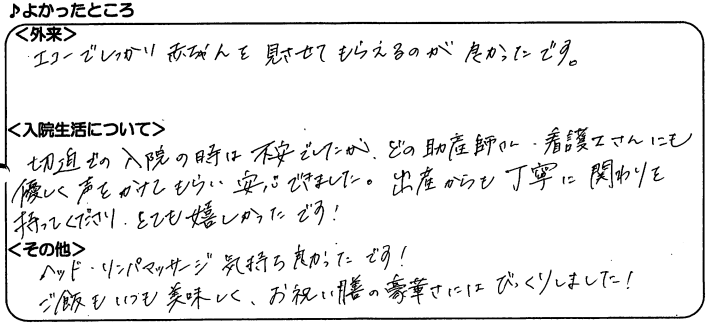 ♪よかったところ
<外来>
エコーでしっかり赤ちゃんを見させてもらえるのが良かったです。
<入院生活について>
切迫での入院の時は不安でしたが、どの助産師さん・看護士さんにも
優しく声をかけてもらい安心できました。出産からも丁寧に関わりを
持ってくださり、とても嬉しかったです!
<その他>
ヘッド・リンパマッサージ気持ち良かったです!
ご飯もいつも美味しく、お祝い膳の豪華さにはびっくりしました!